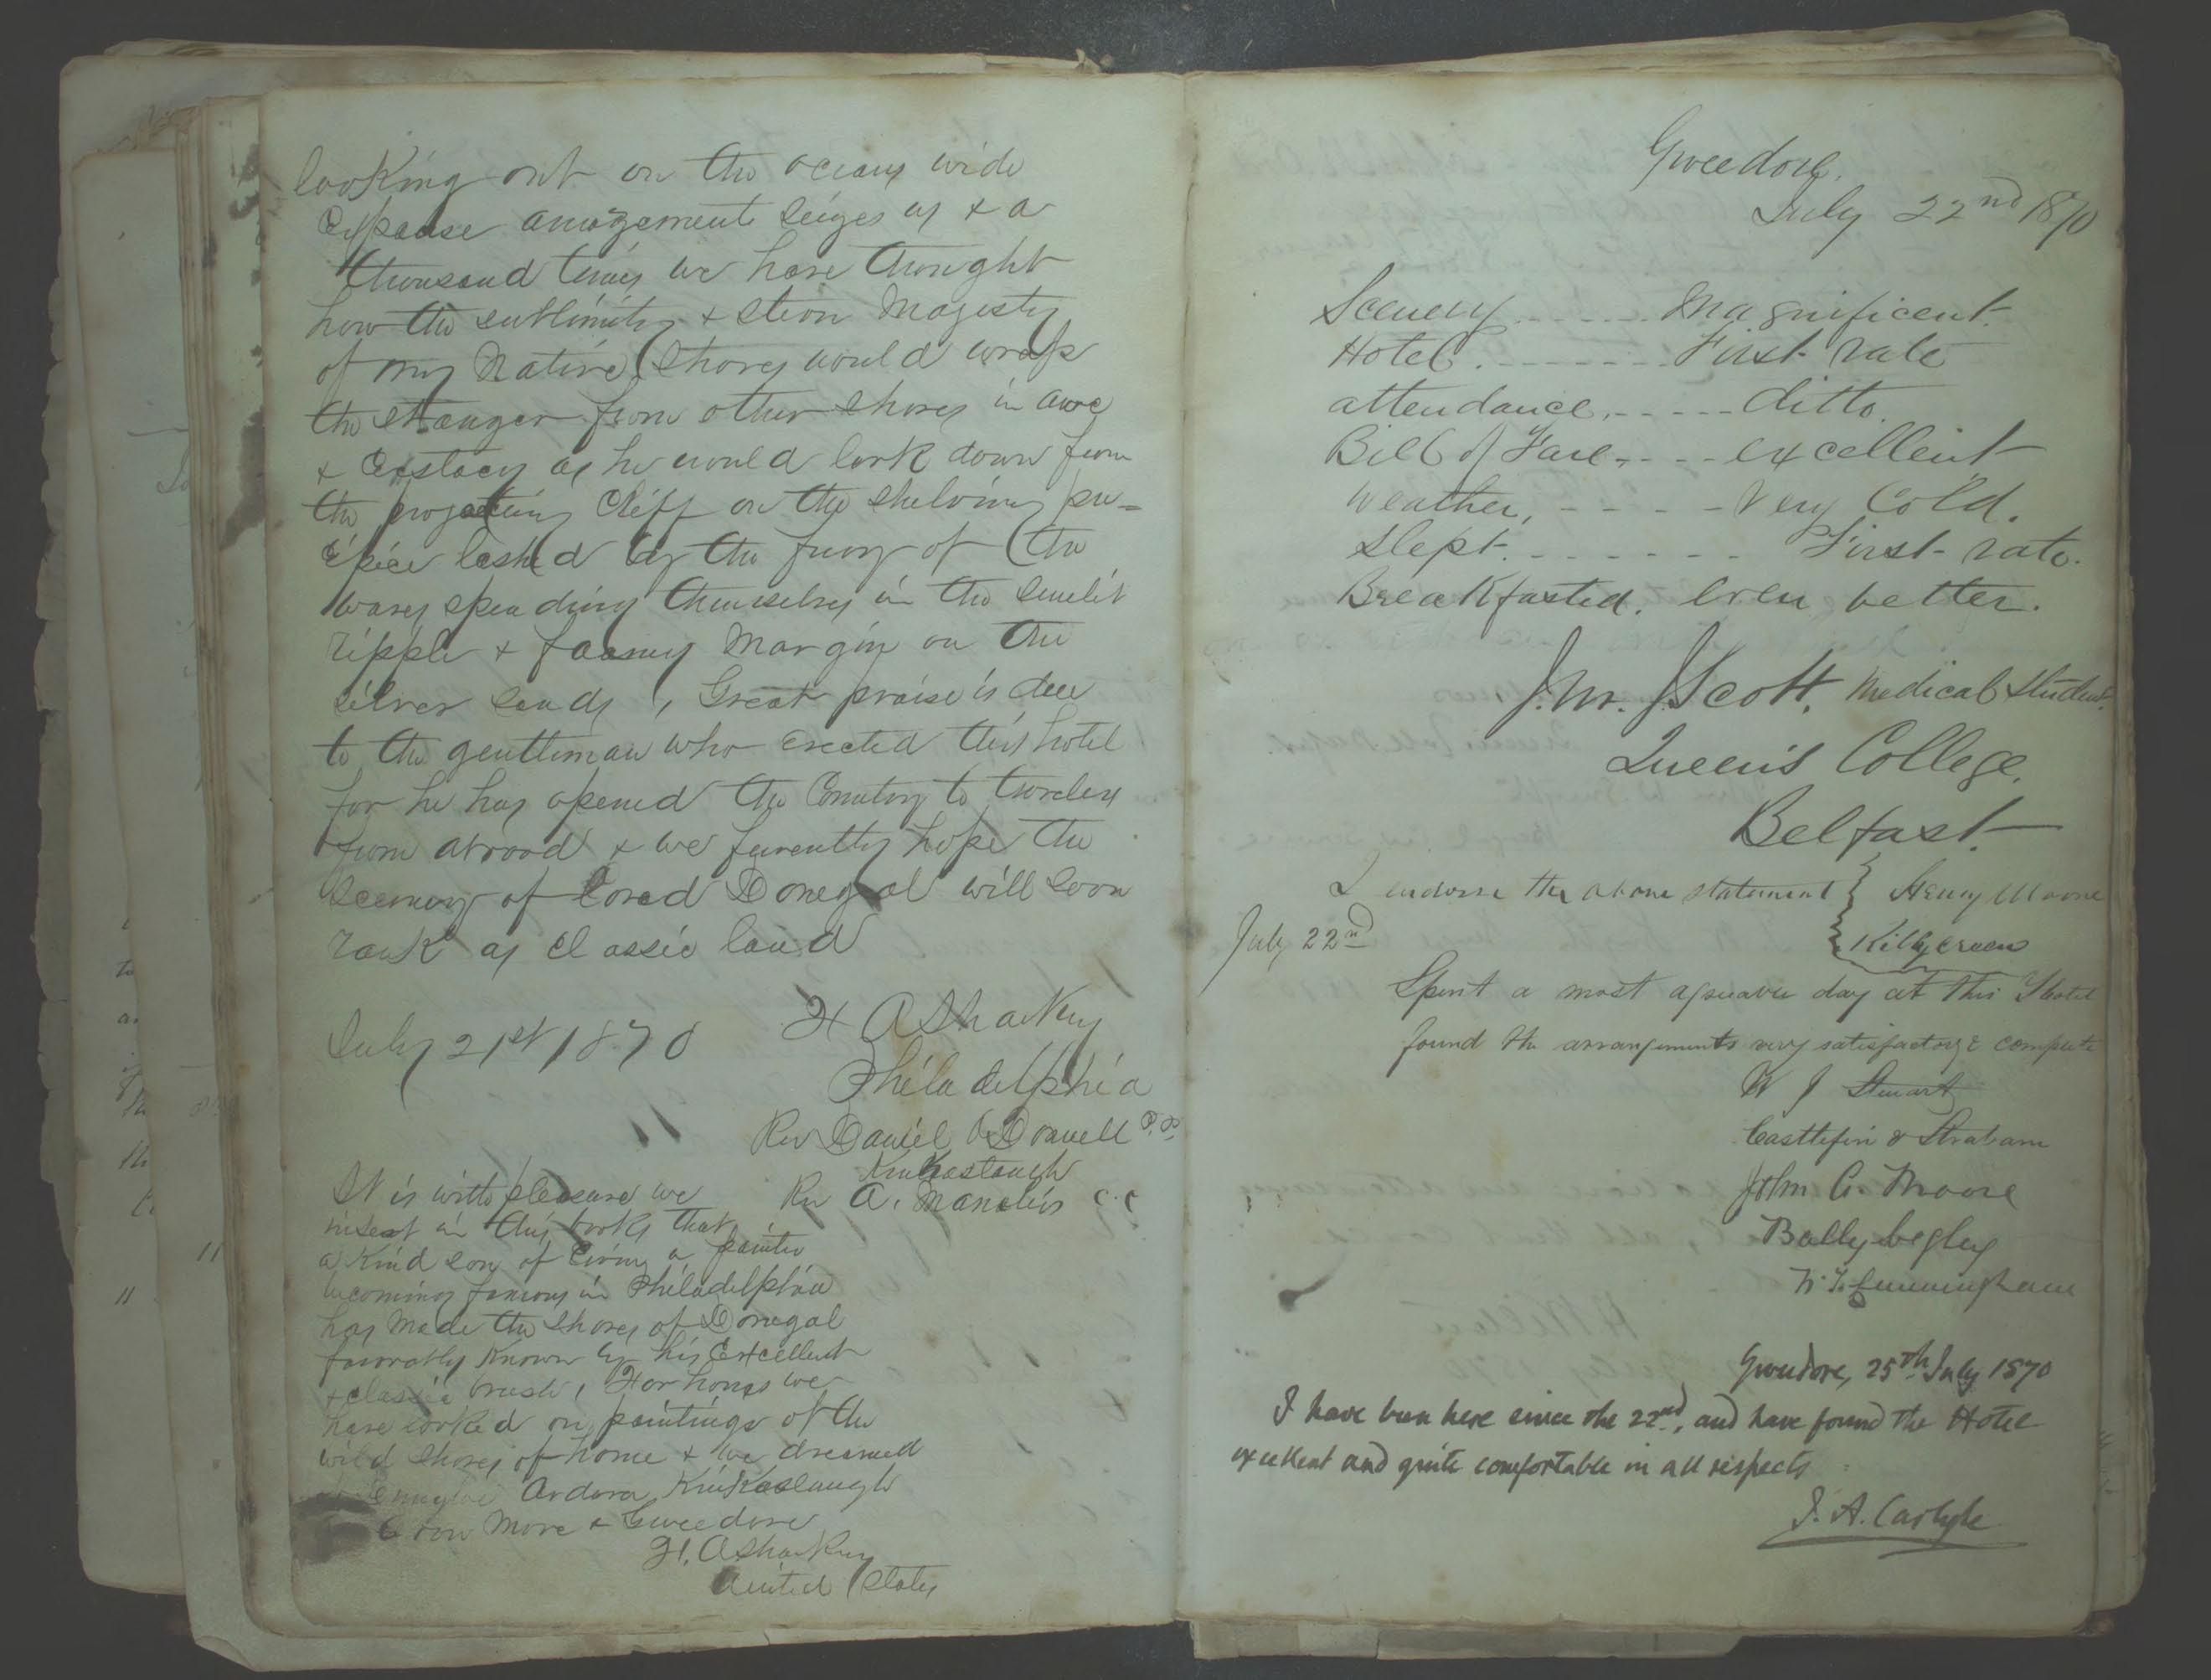 looking out on the oceans wide
Expanse amazement seizes us & a
thousand times we have thought
how the sublimity & stern Magesty
of my Native Shores would wrap
the stranger from other shores in awe
& Exstacy as he would look down from
the projecting Cliff on the shelving pre-
cipice lashed by the fury of the
waves spending themselves in the
ripple & foamy Margin on the
silver sands, Great praise is due
to the gentleman who Erected this hotel
for he has opened the Country to travelers
from abroad & we fervently hope the
Scenery of loved Donegal will soon
rank as Classic land
July 21st 1870
H A Sharkey
Philadelphia
Rev Daniel O Donnell P.P.
Kinkaslaugh
Rev A. C.C
It is with pleasure we
insert in this book that
a Kind son of a painter
becoming famous in Philadelphia
has Made the Shores of Donegal
favorably Known by his Excellent
& classic brush, For hours we
have looked on paintings of the
wild Shores of home & we dreamed
Ardara, Kinkaslaugh
More & Gweedore
H. A Sharkey
United States
Gweedore.
July 22nd 1870
Scenery ..... Magnificent.
Hotel. ....... First rate
attendance, ..... ditto.
Bill of Fare, .... excellent
Weather, ..... Very Cold.
Slept. ....... First-rate.
Breakfasted. even better.
J. M. J. Scott. Medical Student.
Queen's College.
Belfast.
I endorse the above statement } Henry Moore
July 22nd
Killycreen
Spent a most agreeable day at this Hotel
found the arrangements very satisfactory & complete
W J Stewart
Castlefin & Strabane
John G. Moore
Ballybegley
W. J. Cunningham
Gweedore, 25th July 1870
I have been here since the 22nd, and have found the Hotel
excellent and quite comfortable in all respects
J. A. Carlyle